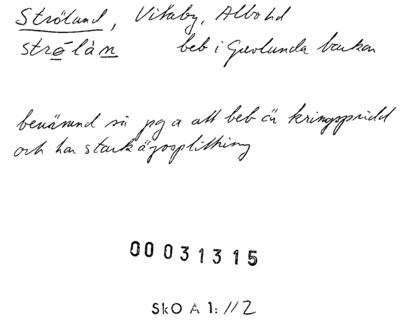 Ströland, Vitaby, Albo hd
strölàn beb i Grevlunda backar
benämnd så pga att beb är kringspridd
och har stark ägosplittning
00031315
SkO A 1: 112